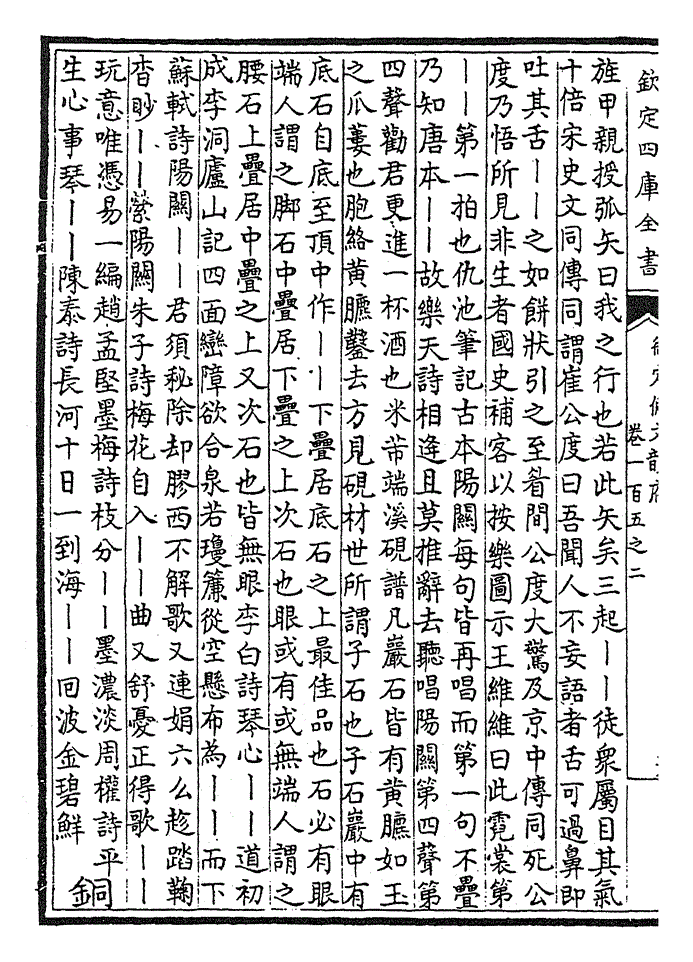 欽定四庫全書
卷一百五之二
旌甲親授弧矢曰我之行也若此矢矣三起｜｜徒衆屬目其氣
十倍宋史文同傳同謂崔公度曰吾聞人不妄語者舌可過鼻即
吐其舌｜｜之如餅狀引之至眉間公度大驚及京中傳同死公
度乃悟所見非生者國史補客以按樂圖示王維維曰此霓裳第
｜｜第一拍也仇池筆記古本陽關每句皆再唱而第一句不疊
乃知唐本｜｜故樂天詩相逢且莫推辭去聽唱陽關第四聲第
四聲勸君更進一杯酒也米芾端溪硯譜凡巖石皆有黄臕如玉
之爪蔞也胞絡黄臕鑿去方見硯材世所謂子石也子石巖中有
底石自底至頂中作｜｜下疊居底石之上最佳品也石必有眼
端人謂之脚石中疊居下疊之上次石也眼或有或無端人謂之
腰石上疊居中疊之上又次石也皆無眼李白詩琴心｜｜道初
成李洞廬山記四面巒障欲合泉若瓊簾從空懸布為｜｜而下
蘇軾詩陽關｜｜君須秘除却膠西不解歌又連娟六么趁蹋鞠
杳眇｜｜縈陽關朱子詩梅花自入｜｜曲又舒憂正得歌｜｜
玩意唯憑易一編趙孟堅墨梅詩枝分｜｜墨濃淡周權詩平
生心事琴｜｜陳泰詩長河十日一到海｜｜回波金碧鮮 銅
金